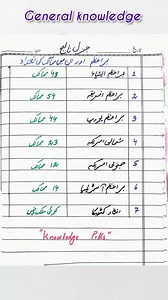 General knowledge
جنرل نالج
براعظم اور ان میں ممالک کی تعداد
1 براعظم ایشیاء 48 ممالک
2 براعظم افریقہ 54 ممالک
3 براعظم یورپ 44 ممالک
4 شمالی امریکہ 23 ممالک
5 جنوبی امریکہ 12 ممالک
6 براعظم آسٹریلیا 14 ممالک
7 انٹارکٹیکا کوئی ملک نہیں
"Knowledge Pills"